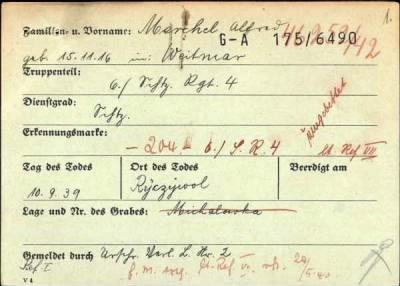 1.
Familien- u. Vorname: Marchel Alfred
G-A 175/6490
geb. 15.11.16 in: Weitmar
Truppenteil: 6./ Schtz. Rgt. 4
Dienstgrad: Schtz.
Erkennungsmarke: - 204 - 6./S.R.4
Tag des Todes Ort des Todes Beerdigt am
10.9.39 Ryczywol
Lage und Nr. des Grabes: Michalowka
Gemeldet durch Urschr. Verl. L. Nr. 2
Ref. I
V 4